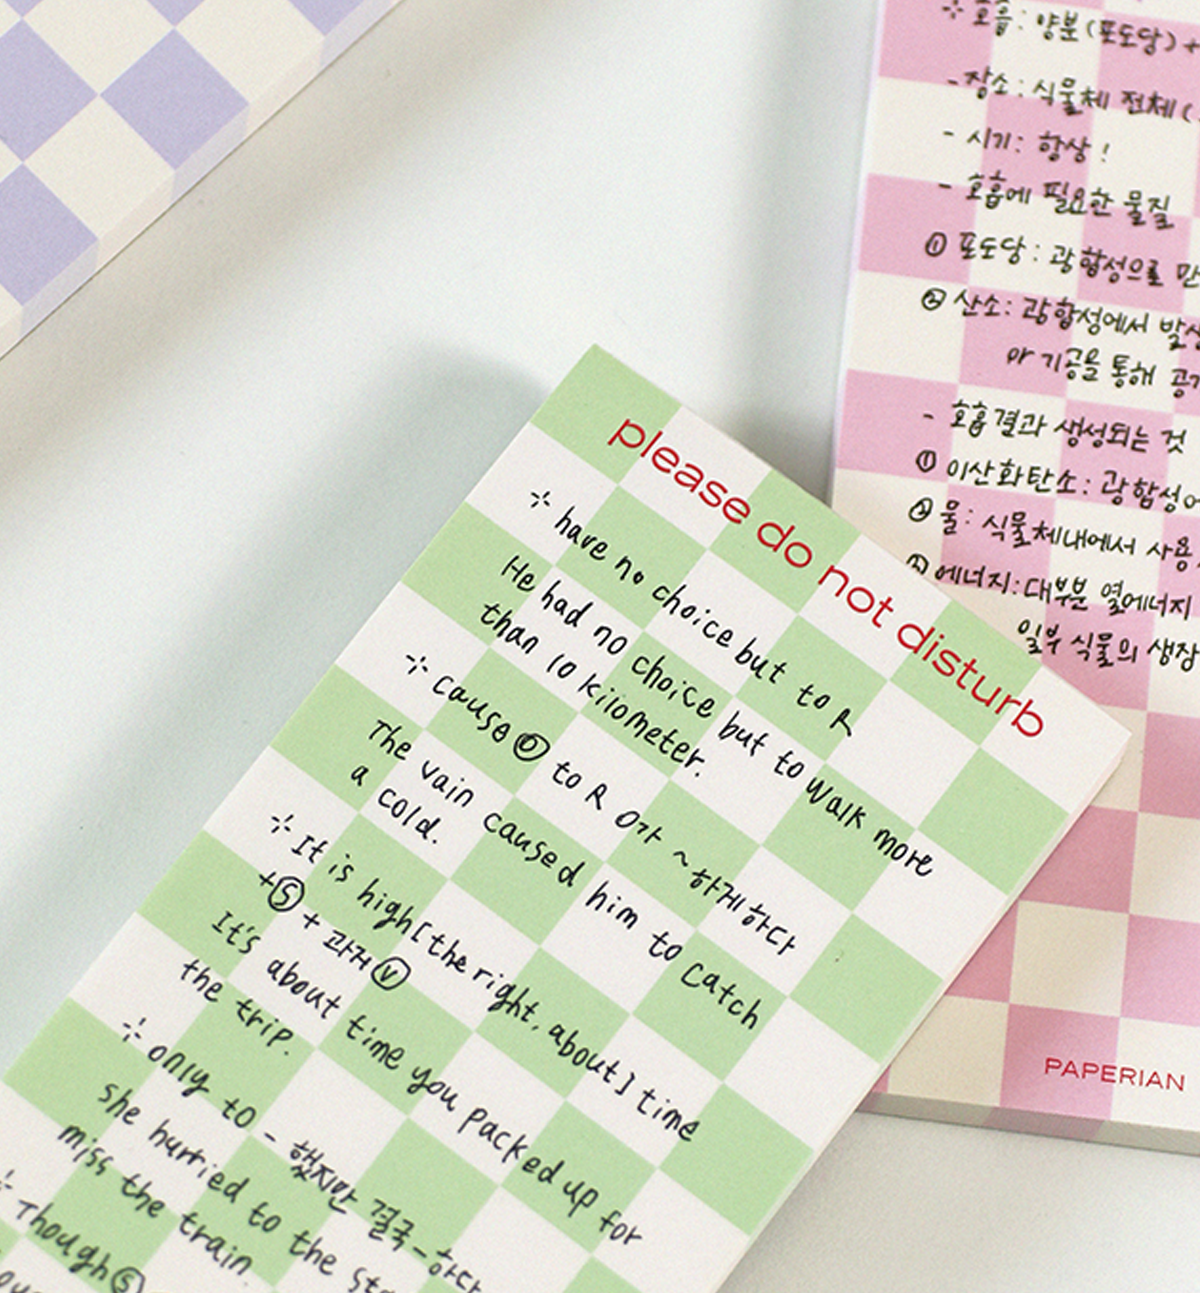 please do not disturb
have no choice but to R
He had no choice but to walk more
than 10 kilometer.
cause ⓞ to R O가 ~하게하다
The vain caused him to catch
a cold.
It is high[the right, about] time
+Ⓢ + 과거 Ⓥ
It's about time you packed up for
the trip.
only to - 했지만 결국 -하다
She hurried to the
miss the train.
Though Ⓢ
호흡: 양분(포도당)+
-장소: 식물체 전체(
- 시기: 항상!
- 호흡에 필요한 물질
① 포도당: 광합성으로
② 산소: 광합성에서
기공을 통해
- 호흡결과 생성되는 것
① 이산화탄소: 광합성에
② 물: 식물체내에서 사용
에너지: 대부분 열에너지
일부 식물의 생장
PAPERIAN